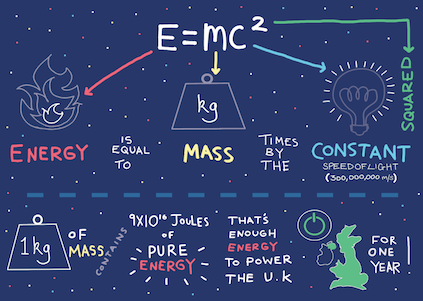 E=mc²
kg
ENERGY
IS
EQUAL
TO
MASS
TIMES
BY
THE
CONSTANT
SPEED OF LIGHT
(300,000,000 m/s)
SQUARED
1kg
OF
MASS
CONTAINS
9X10¹⁶ JOULES
OF
PURE
ENERGY
THAT'S
ENOUGH
ENERGY
TO POWER
THE U.K
FOR
ONE
YEAR